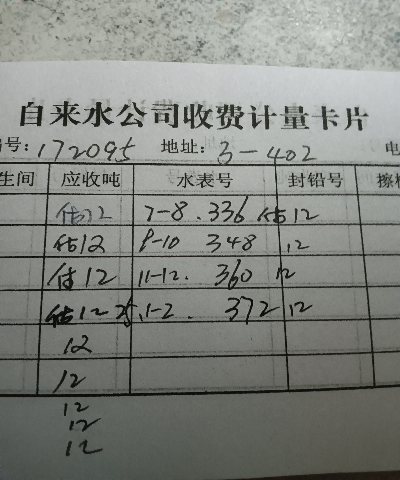 自来水公司收费计量卡片
号:172095 地址:3-402 电
生间 应收吨 水表号 封铅号 擦
估12 7-8.336 估12
估12 9-10 348 12
估12 11-12. 360 12
估12 25.1-2. 372 12
12
12
12
12
12